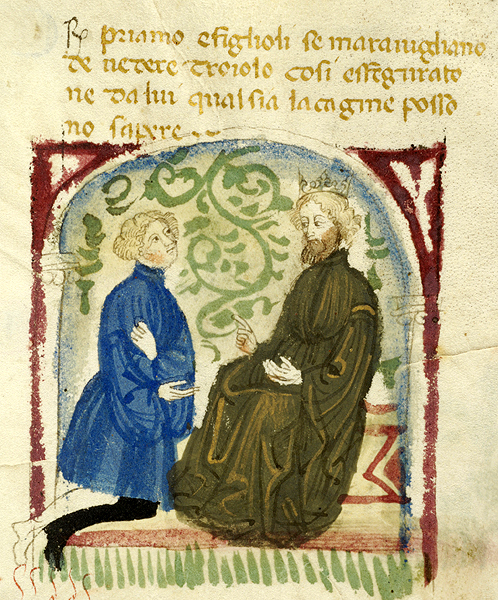 Re priamo e figlioli se maravigliano
de uedere troiolo cosi esfegurato
ne da lui qual sia la cagine posso
no sapere